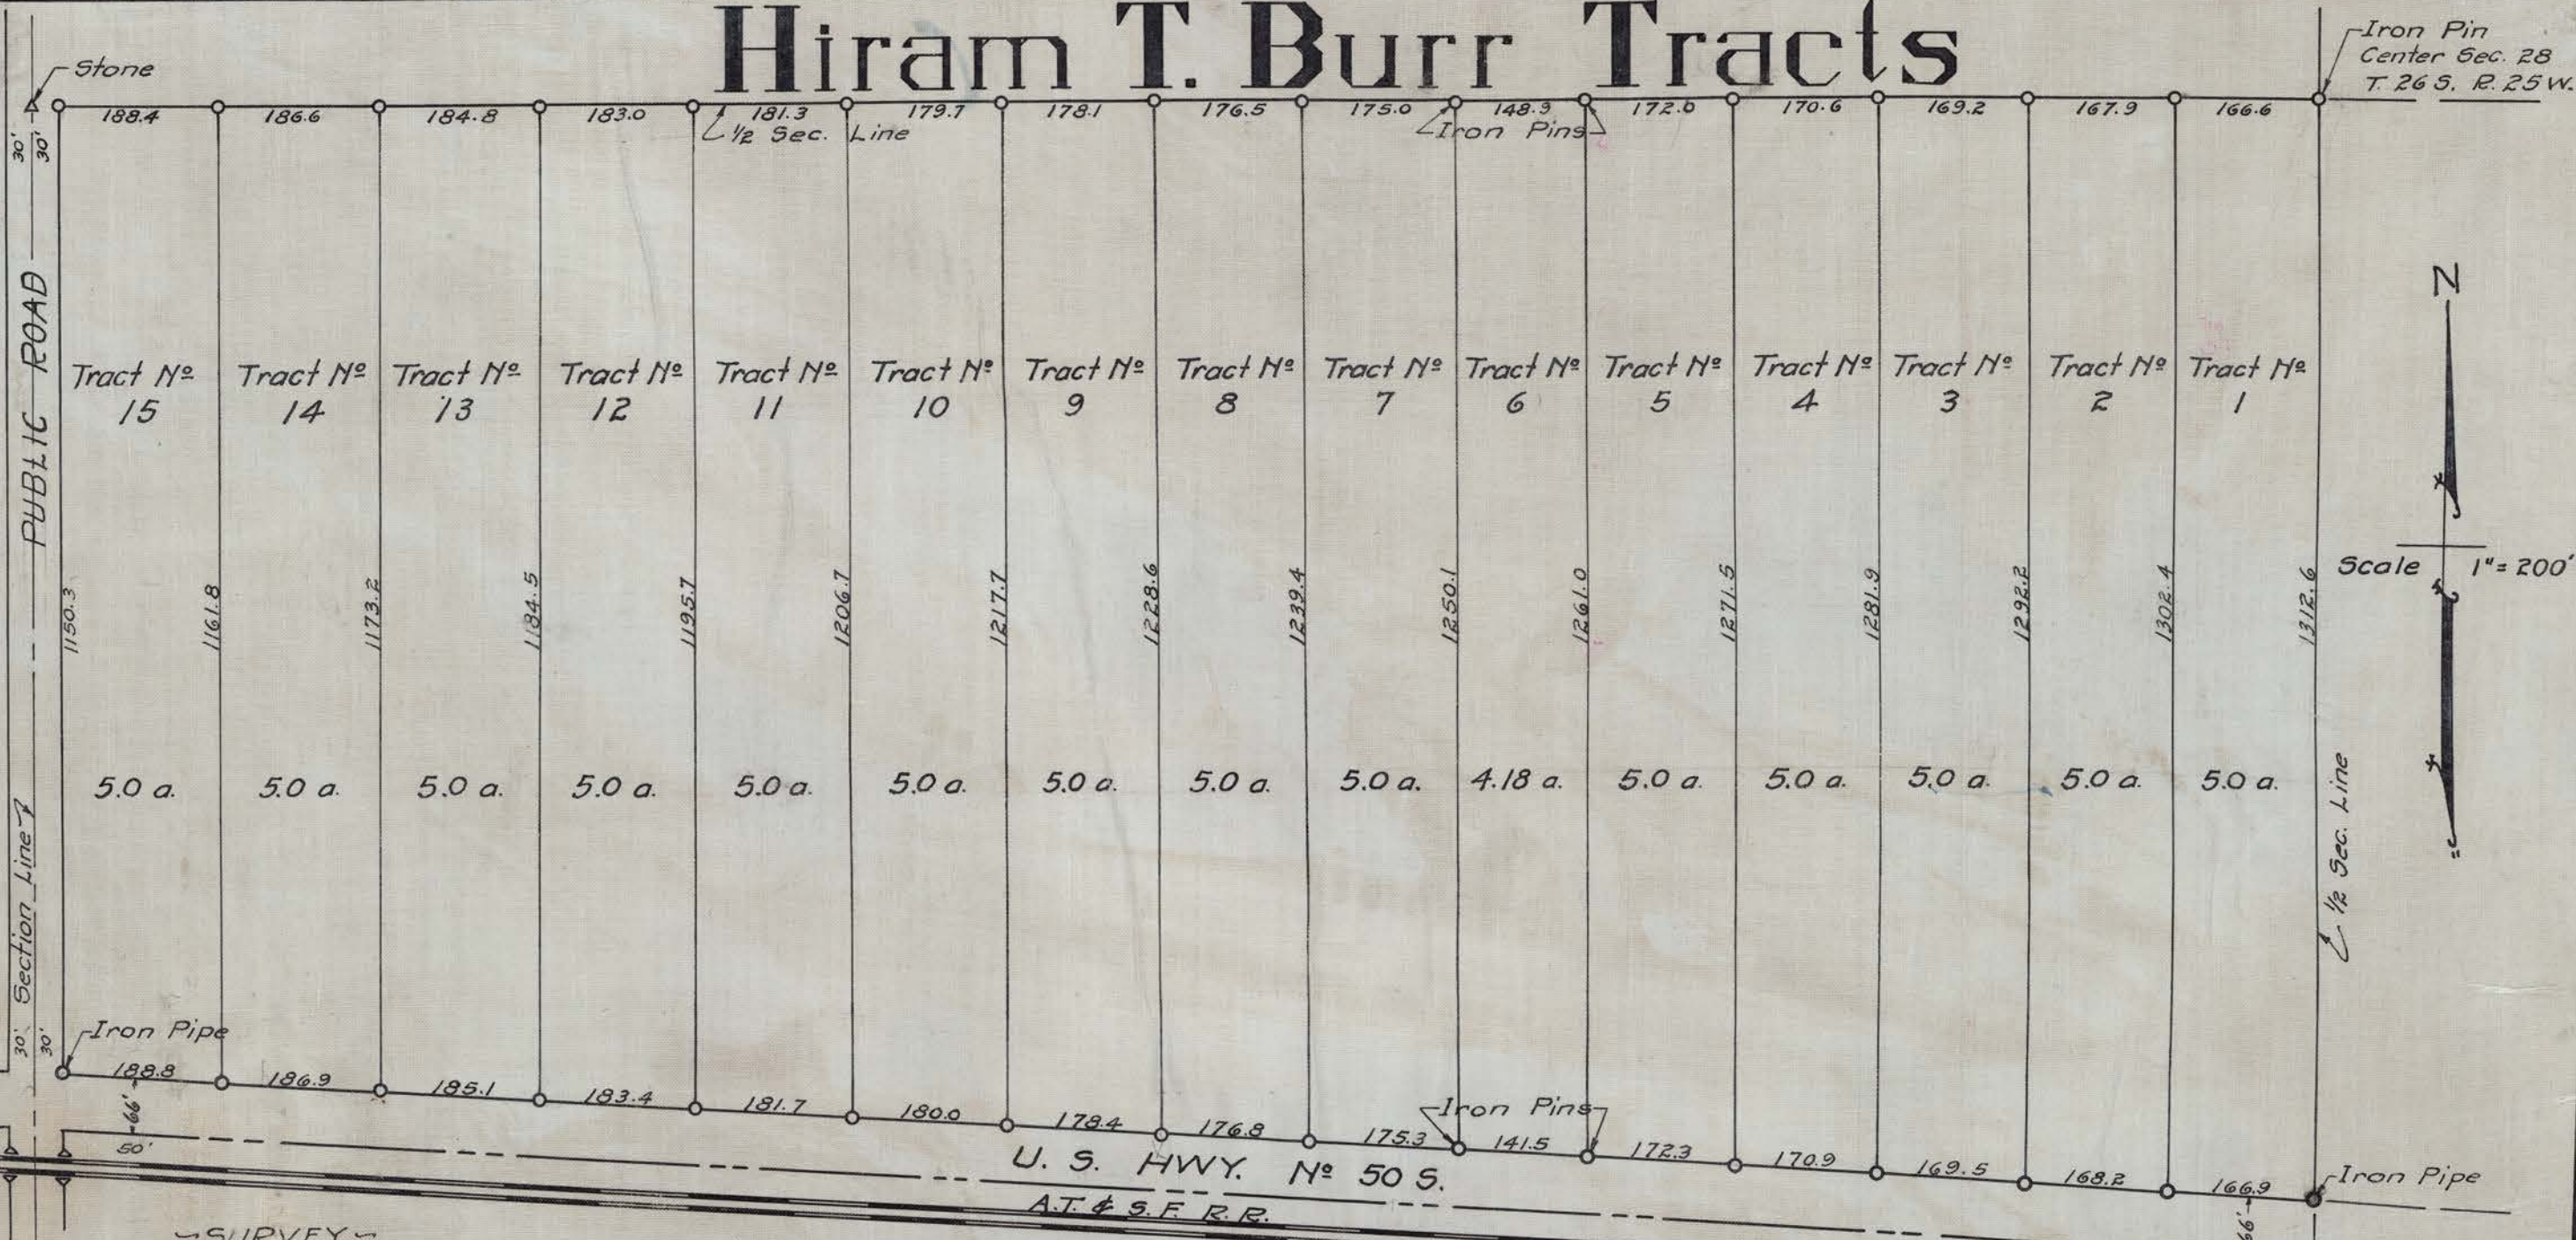 Hiram T. Burr Tracts
Stone
Iron Pin
Center Sec. 28
T. 26 S. R. 25 W.
188.4 186.6 184.8 183.0 181.3 179.7 178.1 176.5 175.0 148.9 172.0 170.6 169.2 167.9 166.6
½ Sec. Line
Iron Pins
30' 30'
PUBLIC ROAD
N
Tract Nº 15
Tract Nº 14
Tract Nº 13
Tract Nº 12
Tract Nº 11
Tract Nº 10
Tract Nº 9
Tract Nº 8
Tract Nº 7
Tract Nº 6
Tract Nº 5
Tract Nº 4
Tract Nº 3
Tract Nº 2
Tract Nº 1
Scale 1" = 200'
1150.3 1161.8 1173.2 1184.5 1195.7 1206.7 1217.7 1228.6 1239.4 1250.1 1261.0 1271.5 1281.9 1292.2 1302.4 1312.6
5.0 a. 5.0 a. 5.0 a. 5.0 a. 5.0 a. 5.0 a. 5.0 a. 5.0 a. 5.0 a. 4.18 a. 5.0 a. 5.0 a. 5.0 a. 5.0 a. 5.0 a.
Section Line
½ Sec. Line
30' 30'
Iron Pipe
188.8 186.9 185.1 183.4 181.7 180.0 178.4 176.8 175.3 141.5 172.3 170.9 169.5 168.2 166.9
Iron Pins
Iron Pipe
66'
50'
66'
U. S. HWY. Nº 50 S.
A.T. & S.F. R.R.
~SURVEY~